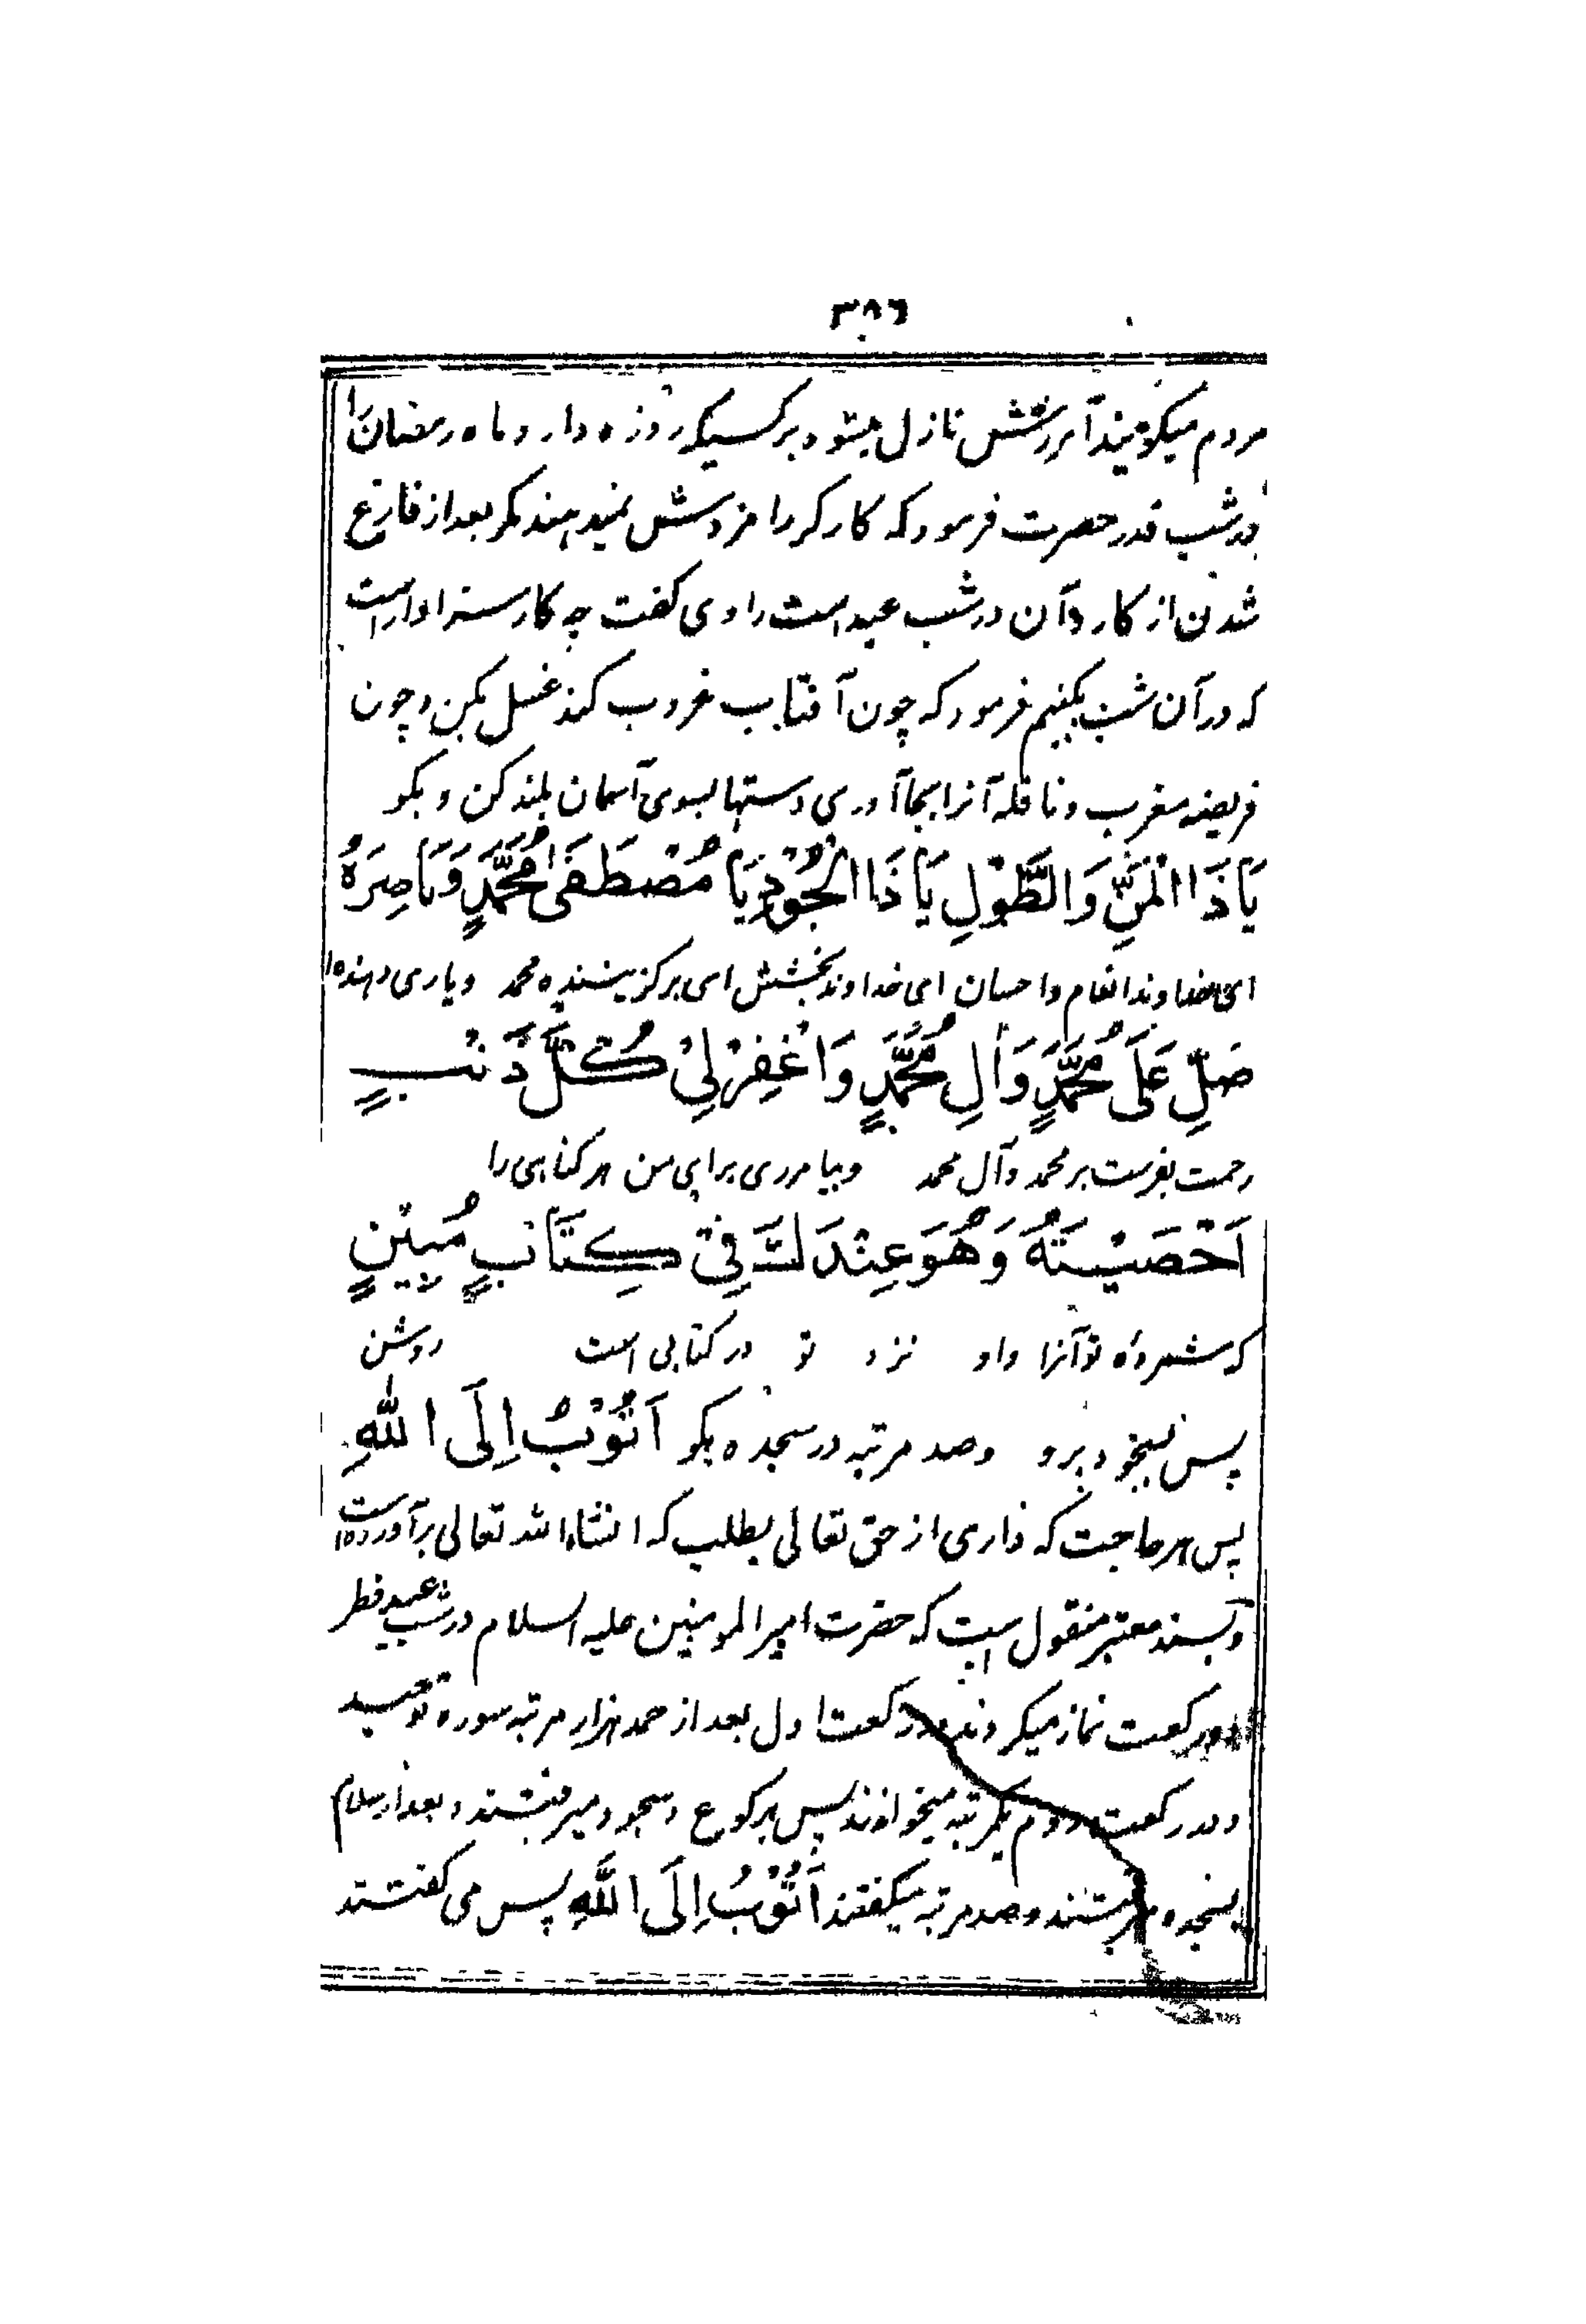 ۳۸٦
مردم میگویند آمرزش نازل میشود بر کسیکه روزه دارد ماه رمضان را
در شب قدر حضرت فرمود که کارکر را مزدش نمیدهند مکر بعد از فارغ
شدن از کار و آن در شب عید است راوی گفت چه کار سزاوار است
که در آن شب بکنیم فرمود که چون آفتاب غروب کند غسل بکن و چون
فریضه مغرب و نافله آنرا بجا آوری دستها بسوی آسمان بلند کن و بکو
يَا ذَا الْمَنِّ وَالطَّوْلِ يَا ذَا الْجُوْدِ يَا مُصْطَفَى مُحَمَّدٍ وَنَاصِرَهُ
ای خداوند انعام و احسان ای خداوند بخشش ای برگزیننده محمد و یاری دهنده او
صَلِّ عَلَى مُحَمَّدٍ وَآلِ مُحَمَّدٍ وَاغْفِرْ لِيْ كُلَّ ذَنْبٍ
رحمت بفرست بر محمد و آل محمد و بیامرزی برای من هر کناهی را
اَحْصَيْتَهُ وَهُوَ عِنْدَكَ فِيْ كِتَابٍ مُبِيْنٍ
که شمردهٔ تو آنرا و او نزد تو در کتابی است روشن
پس بسجود برو و صد مرتبه در سجده بکو اَتُوْبُ اِلَى اللّٰهِ
پس هر حاجت که داری از حق تعالی بطلب که انشاء الله تعالی برآورده است
و بسند معتبر منقول است که حضرت امیر المومنین علیه السلام در شب عید فطر
دو رکعت نماز میکردند در رکعت اول بعد از حمد هزار مرتبه سوره توحید
و در رکعت دوم یکمرتبه میخواندند پس برکوع و سجود میرفتند و بعد از سلام
بسجده میرفتند و صد مرتبه میکفتند اَتُوْبُ اِلَى اللّٰهِ پس می کفتند